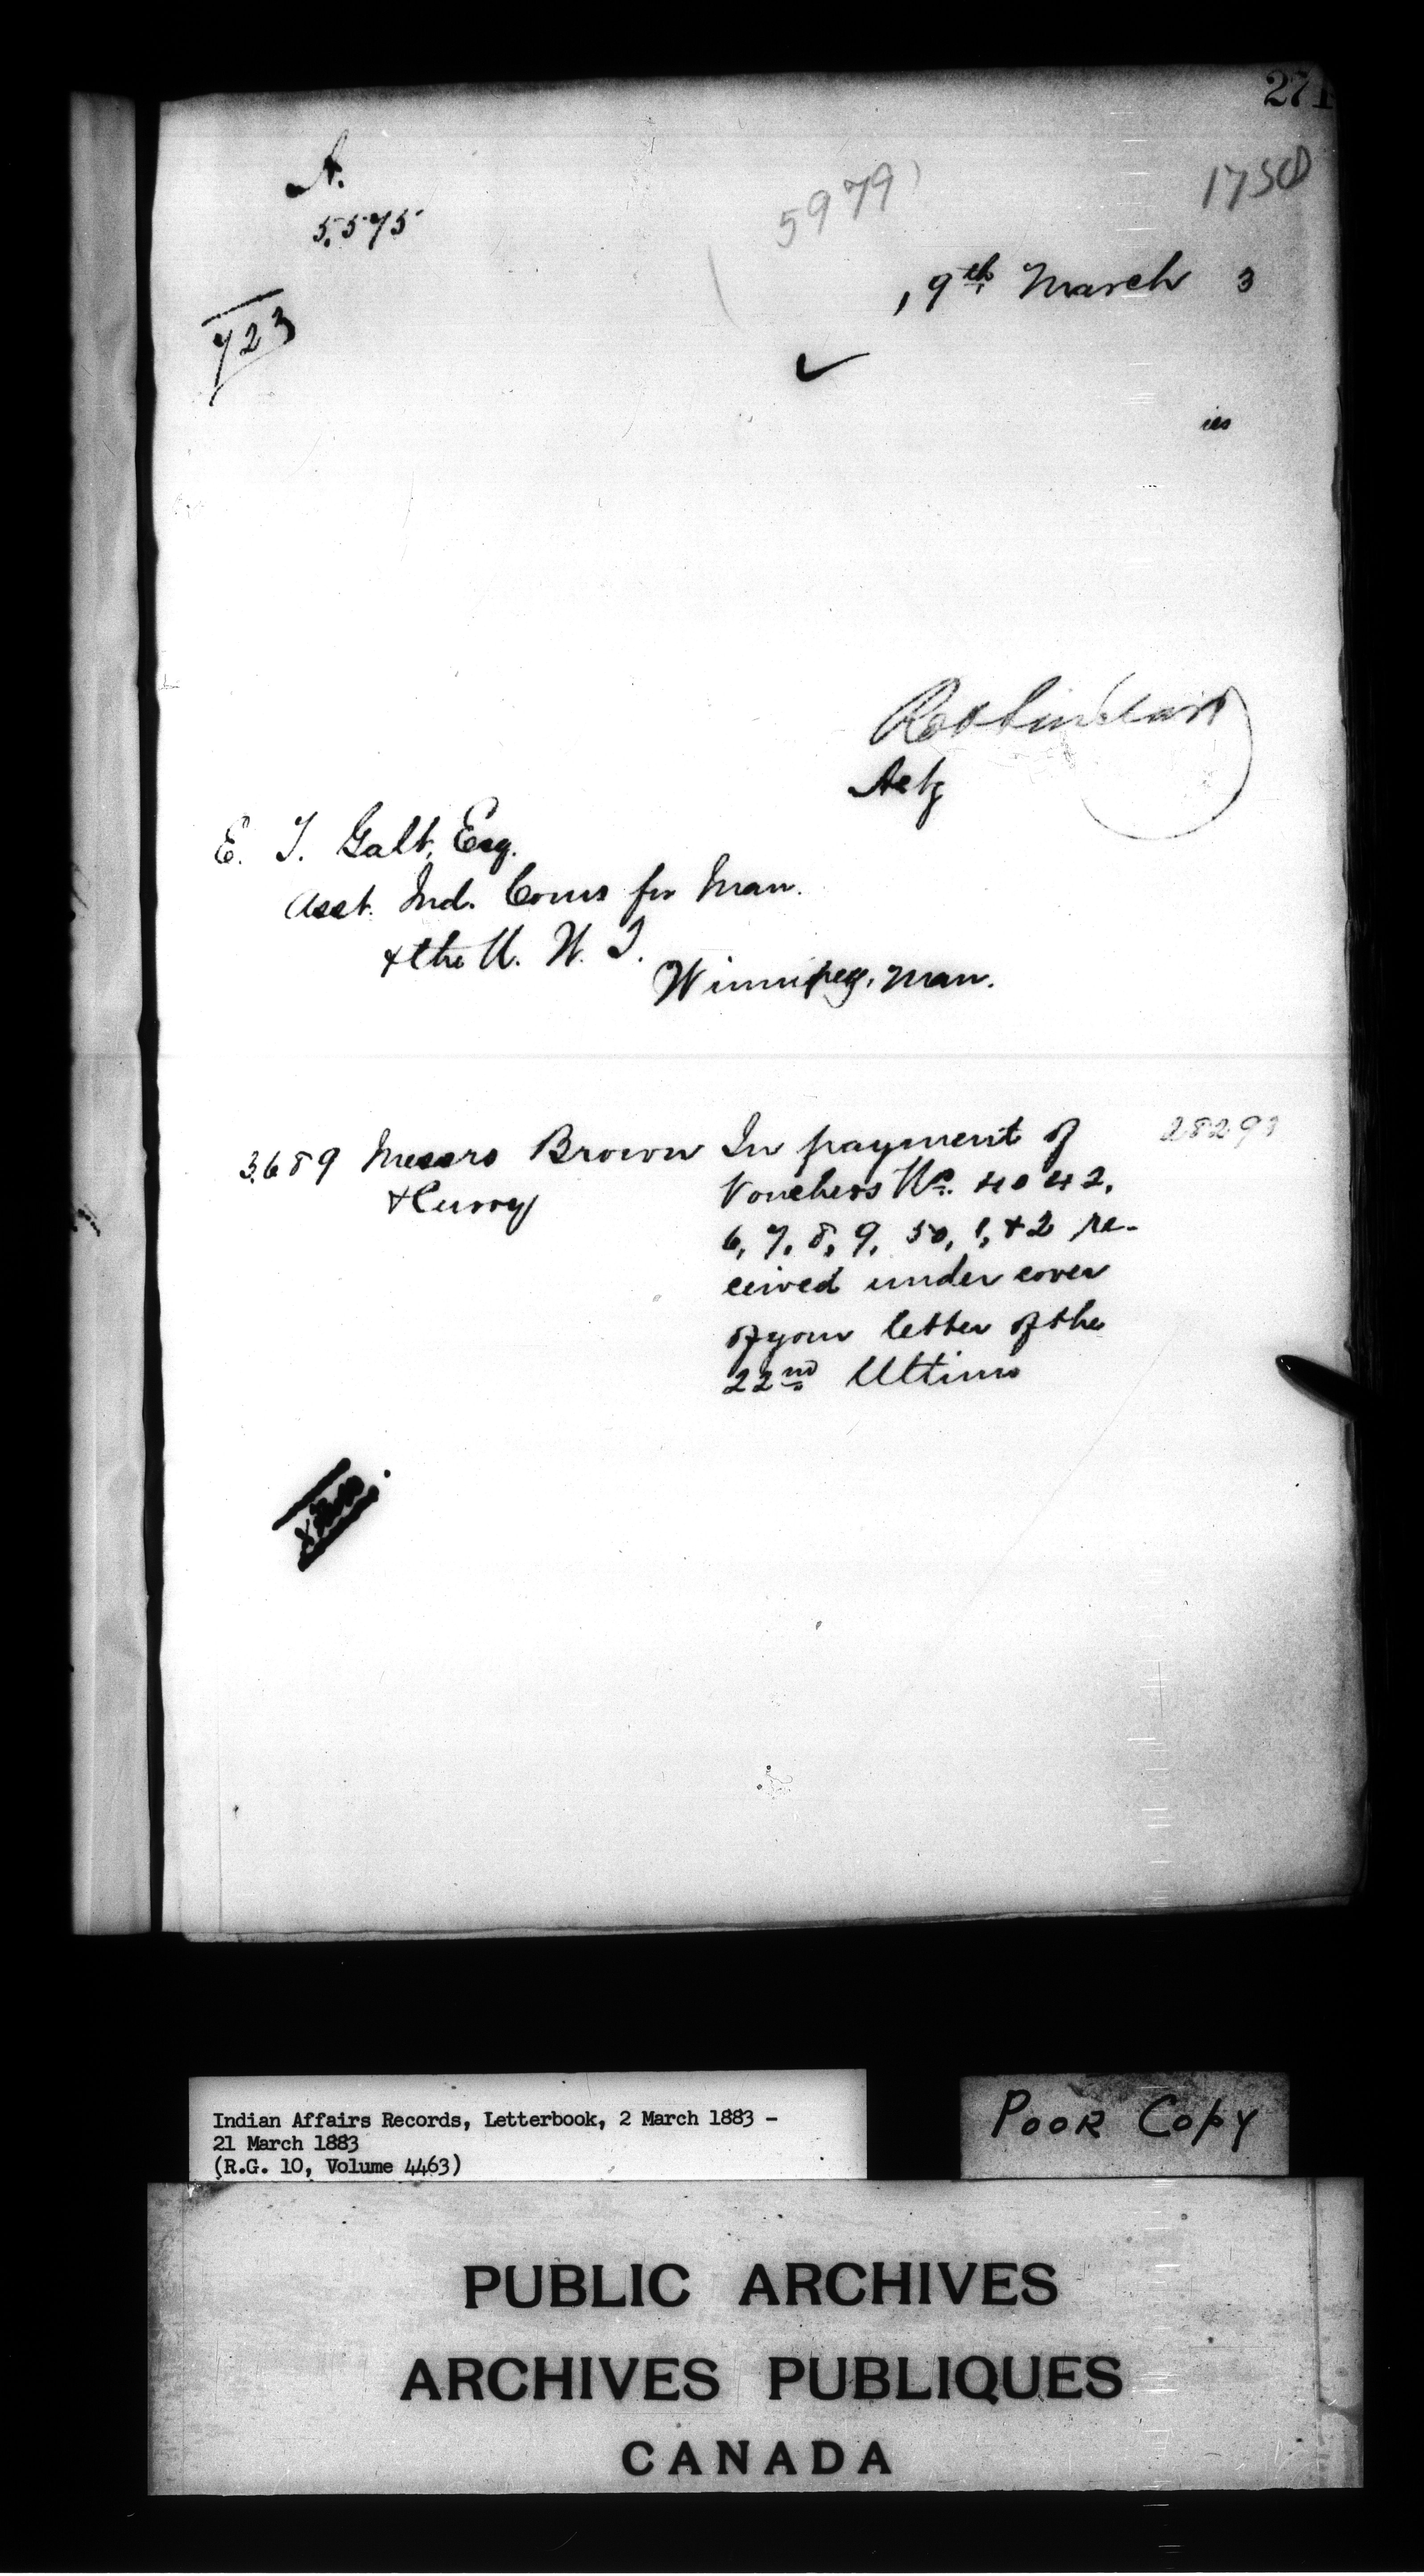 271
A.
5,575
5979
1750
, 9th March 3
723
ies
Actg
E. T. Galt, Esq.
Asst. Ind. Coms for Man.
& the N. W. T.
Winnipeg, Man.
3,689 Messrs Brown In payment of 28291
& Curry Vouchers Nos. 40 42,
6, 7, 8, 9, 50, 1, & 2 re-
ceived under cover
of your letter of the
22nd Ultimo
Indian Affairs Records, Letterbook, 2 March 1883 -
21 March 1883
(R.G. 10, Volume 4463)
Poor Copy
PUBLIC ARCHIVES
ARCHIVES PUBLIQUES
CANADA